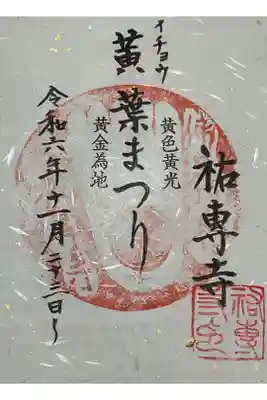 祐専寺
黄色黄光
黄金為地
イチョウ
黄葉まつり
令和六年十一月二十三日～